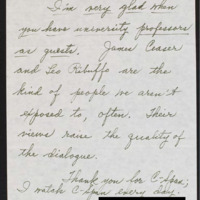 I'm very glad when
you have university professors
as guests. James Ceaser
and Leo Ribuffo are the
kind of people we aren't
exposed to, often. Their
views raise the quality of
the dialogue.
Thank you for C-Span;
I watch C-Span every day.